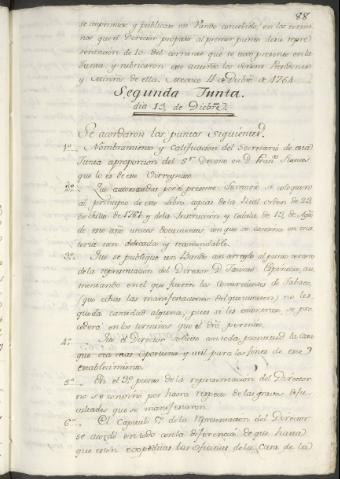 88
se imprimiese y publicase un Bando concebido en los termi-
nos que el Director propuso al primer punto de su repre-
sentacion de 10. del corriente que se tuvo presente en la
Junta y rubricaron este acuerdo los señores Presidente
y Ministros de ella. Mexico 11 de Dizbre. de 1764.
Segunda Junta.
dia 13. de Dicibre.
Se acordaron los puntos siguientes.
1o. Nombramiento y Calificacion del Secretario de esta
Junta a proporcion del Sr. en D. Franco.
que lo es de este Virreynato.
2o. Que por el presente Secretario se coloquen
al principio de este Libro copias de la Real orden de
de de 1761 y de la Instruccion y Cedula de 13. de Agto.
de este año unicos Documentos con que se camina en ma-
teria tan delicada y recomendable.
3o. Que se publique un Bando con arreglo al punto
de la representacion del Director D. Jacinto Espinosa, au-
mentando en el que fueren los Comerciantes de Tabaco,
que echas las manifestaciones no les
queda cantidad alguna, pues si los se pro-
cederá en los terminos que el dro. permite.
4o. Que el Director solicite con toda prontitud la Casa
que sea mas oportuna y util para los fines de este
establecimiento.
5o. En el 3o. punto de la representacion del Director
no se convino por haora respecto de las graves difi-
cultades que se manifestaron.
6o. El Capitulo 5o. de la representacion del Director
se acordó en todo con la diferencia de que hasta
que esten las oficinas de la Casa de la